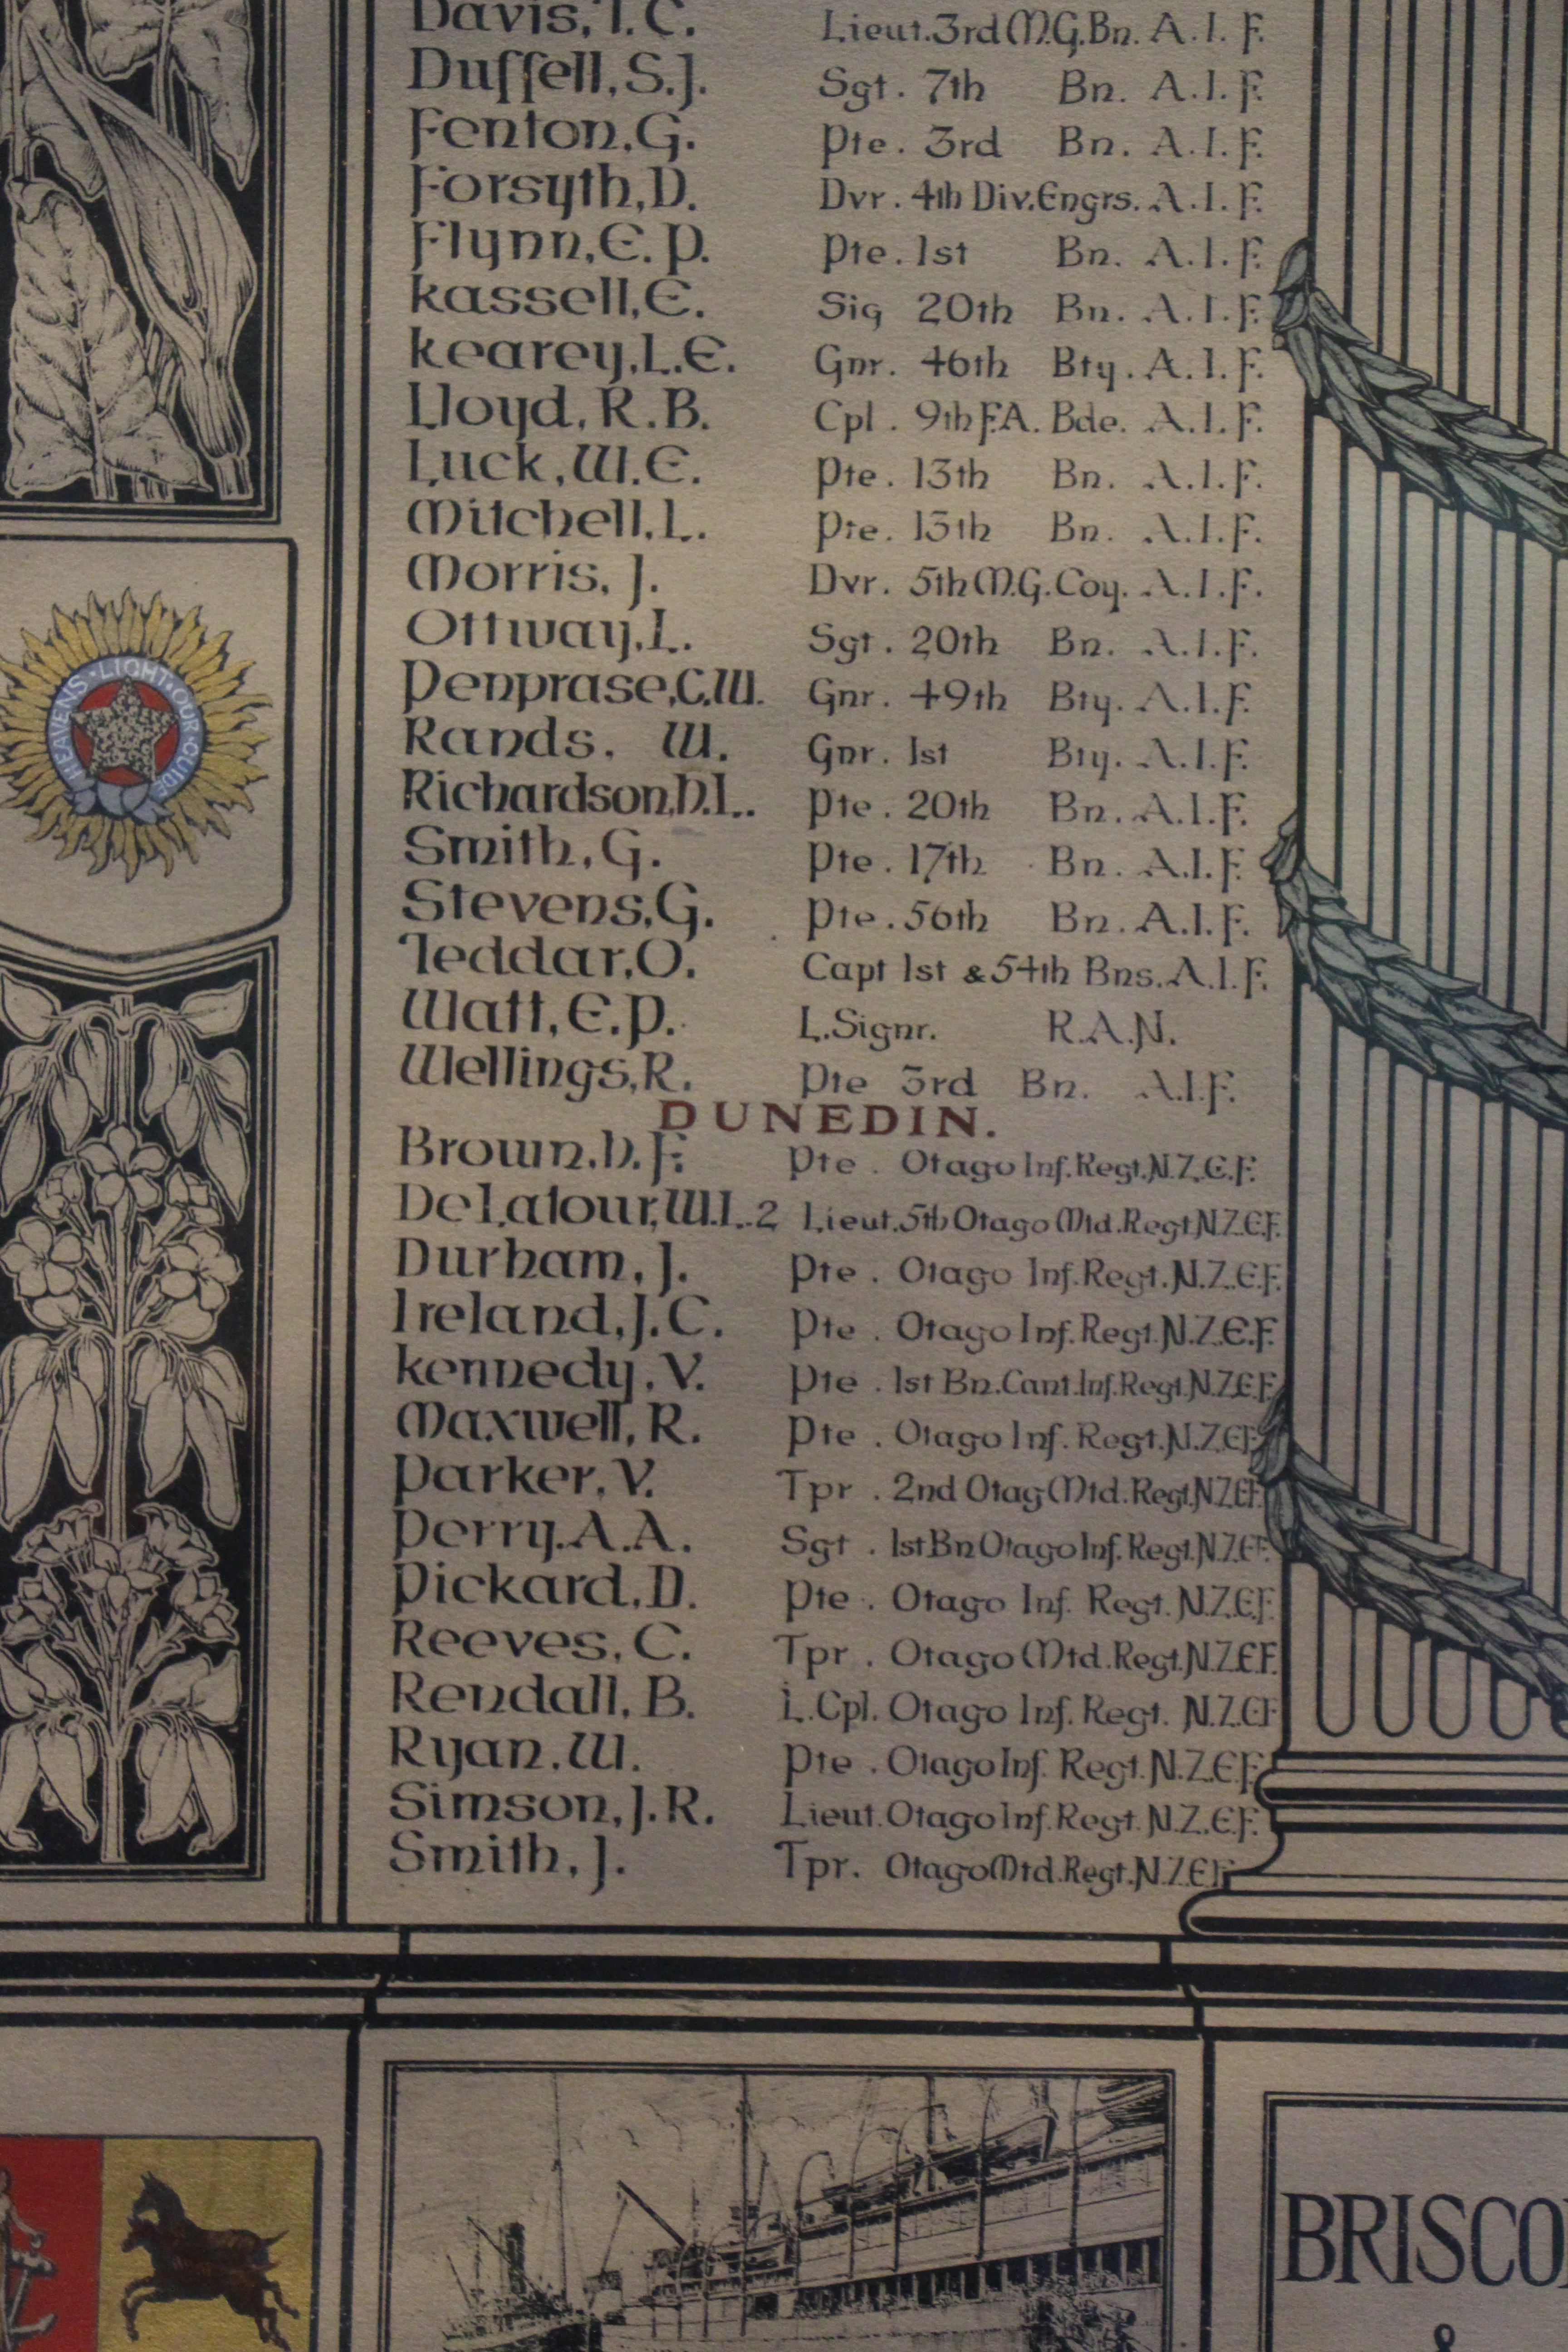 Davis, T. C. Lieut. 3rd M.G. Bn. A. I. F.
Duffell, S. J. Sgt. 7th Bn. A. I. F.
Fenton, G. Pte. 3rd Bn. A. I. F.
Forsyth, D. Dvr. 4th Div. Engrs. A. I. F.
Flynn, E. P. Pte. 1st Bn. A. I. F.
Kassell, E. Sig 20th Bn. A. I. F.
Kearey, L. E. Gnr. 46th Bty. A. I. F.
Lloyd, R. B. Cpl. 9th F.A. Bde. A. I. F.
Luck, W. E. Pte. 13th Bn. A. I. F.
Mitchell, L. Pte. 13th Bn. A. I. F.
Morris, J. Dvr. 5th M.G. Coy. A. I. F.
Ottway, L. Sgt. 20th Bn. A. I. F.
Penprase, C. W. Gnr. 49th Bty. A. I. F.
HEAVENS · LIGHT · OUR · GUIDE
Rands, W. Gnr. 1st Bty. A. I. F.
Richardson, H. L. Pte. 20th Bn. A. I. F.
Smith, G. Pte. 17th Bn. A. I. F.
Stevens, G. Pte. 56th Bn. A. I. F.
Teddar, O. Capt 1st & 54th Bns. A. I. F.
Watt, E. P. L. Signr. R. A. N.
Wellings, R. Pte 3rd Bn. A. I. F.
DUNEDIN.
Brown, H. F. Pte. Otago Inf. Regt. N. Z. E. F.
De Latour, W. L. 2 Lieut. 5th Otago Mtd. Regt N. Z. E. F.
Durham, J. Pte. Otago Inf. Regt. N. Z. E. F.
Ireland, J. C. Pte. Otago Inf. Regt. N. Z. E. F.
Kennedy, V. Pte. 1st Bn. Cant. Inf. Regt. N. Z. E. F.
Maxwell, R. Pte. Otago Inf. Regt. N. Z. E. F.
Parker, V. Tpr. 2nd Otag Mtd. Regt. N. Z. E. F.
Perry, A. A. Sgt. 1st Bn Otago Inf. Regt. N. Z. E. F.
Pickard, D. Pte. Otago Inf. Regt. N. Z. E. F.
Reeves, C. Tpr. Otago Mtd. Regt. N. Z. E. F.
Rendall, B. L. Cpl. Otago Inf. Regt. N. Z. E. F
Ryan, W. Pte. Otago Inf. Regt. N. Z. E. F.
Simson, J. R. Lieut. Otago Inf. Regt. N. Z. E. F.
Smith, J. Tpr. Otago Mtd. Regt. N. Z. E. F.
BRISCO
&